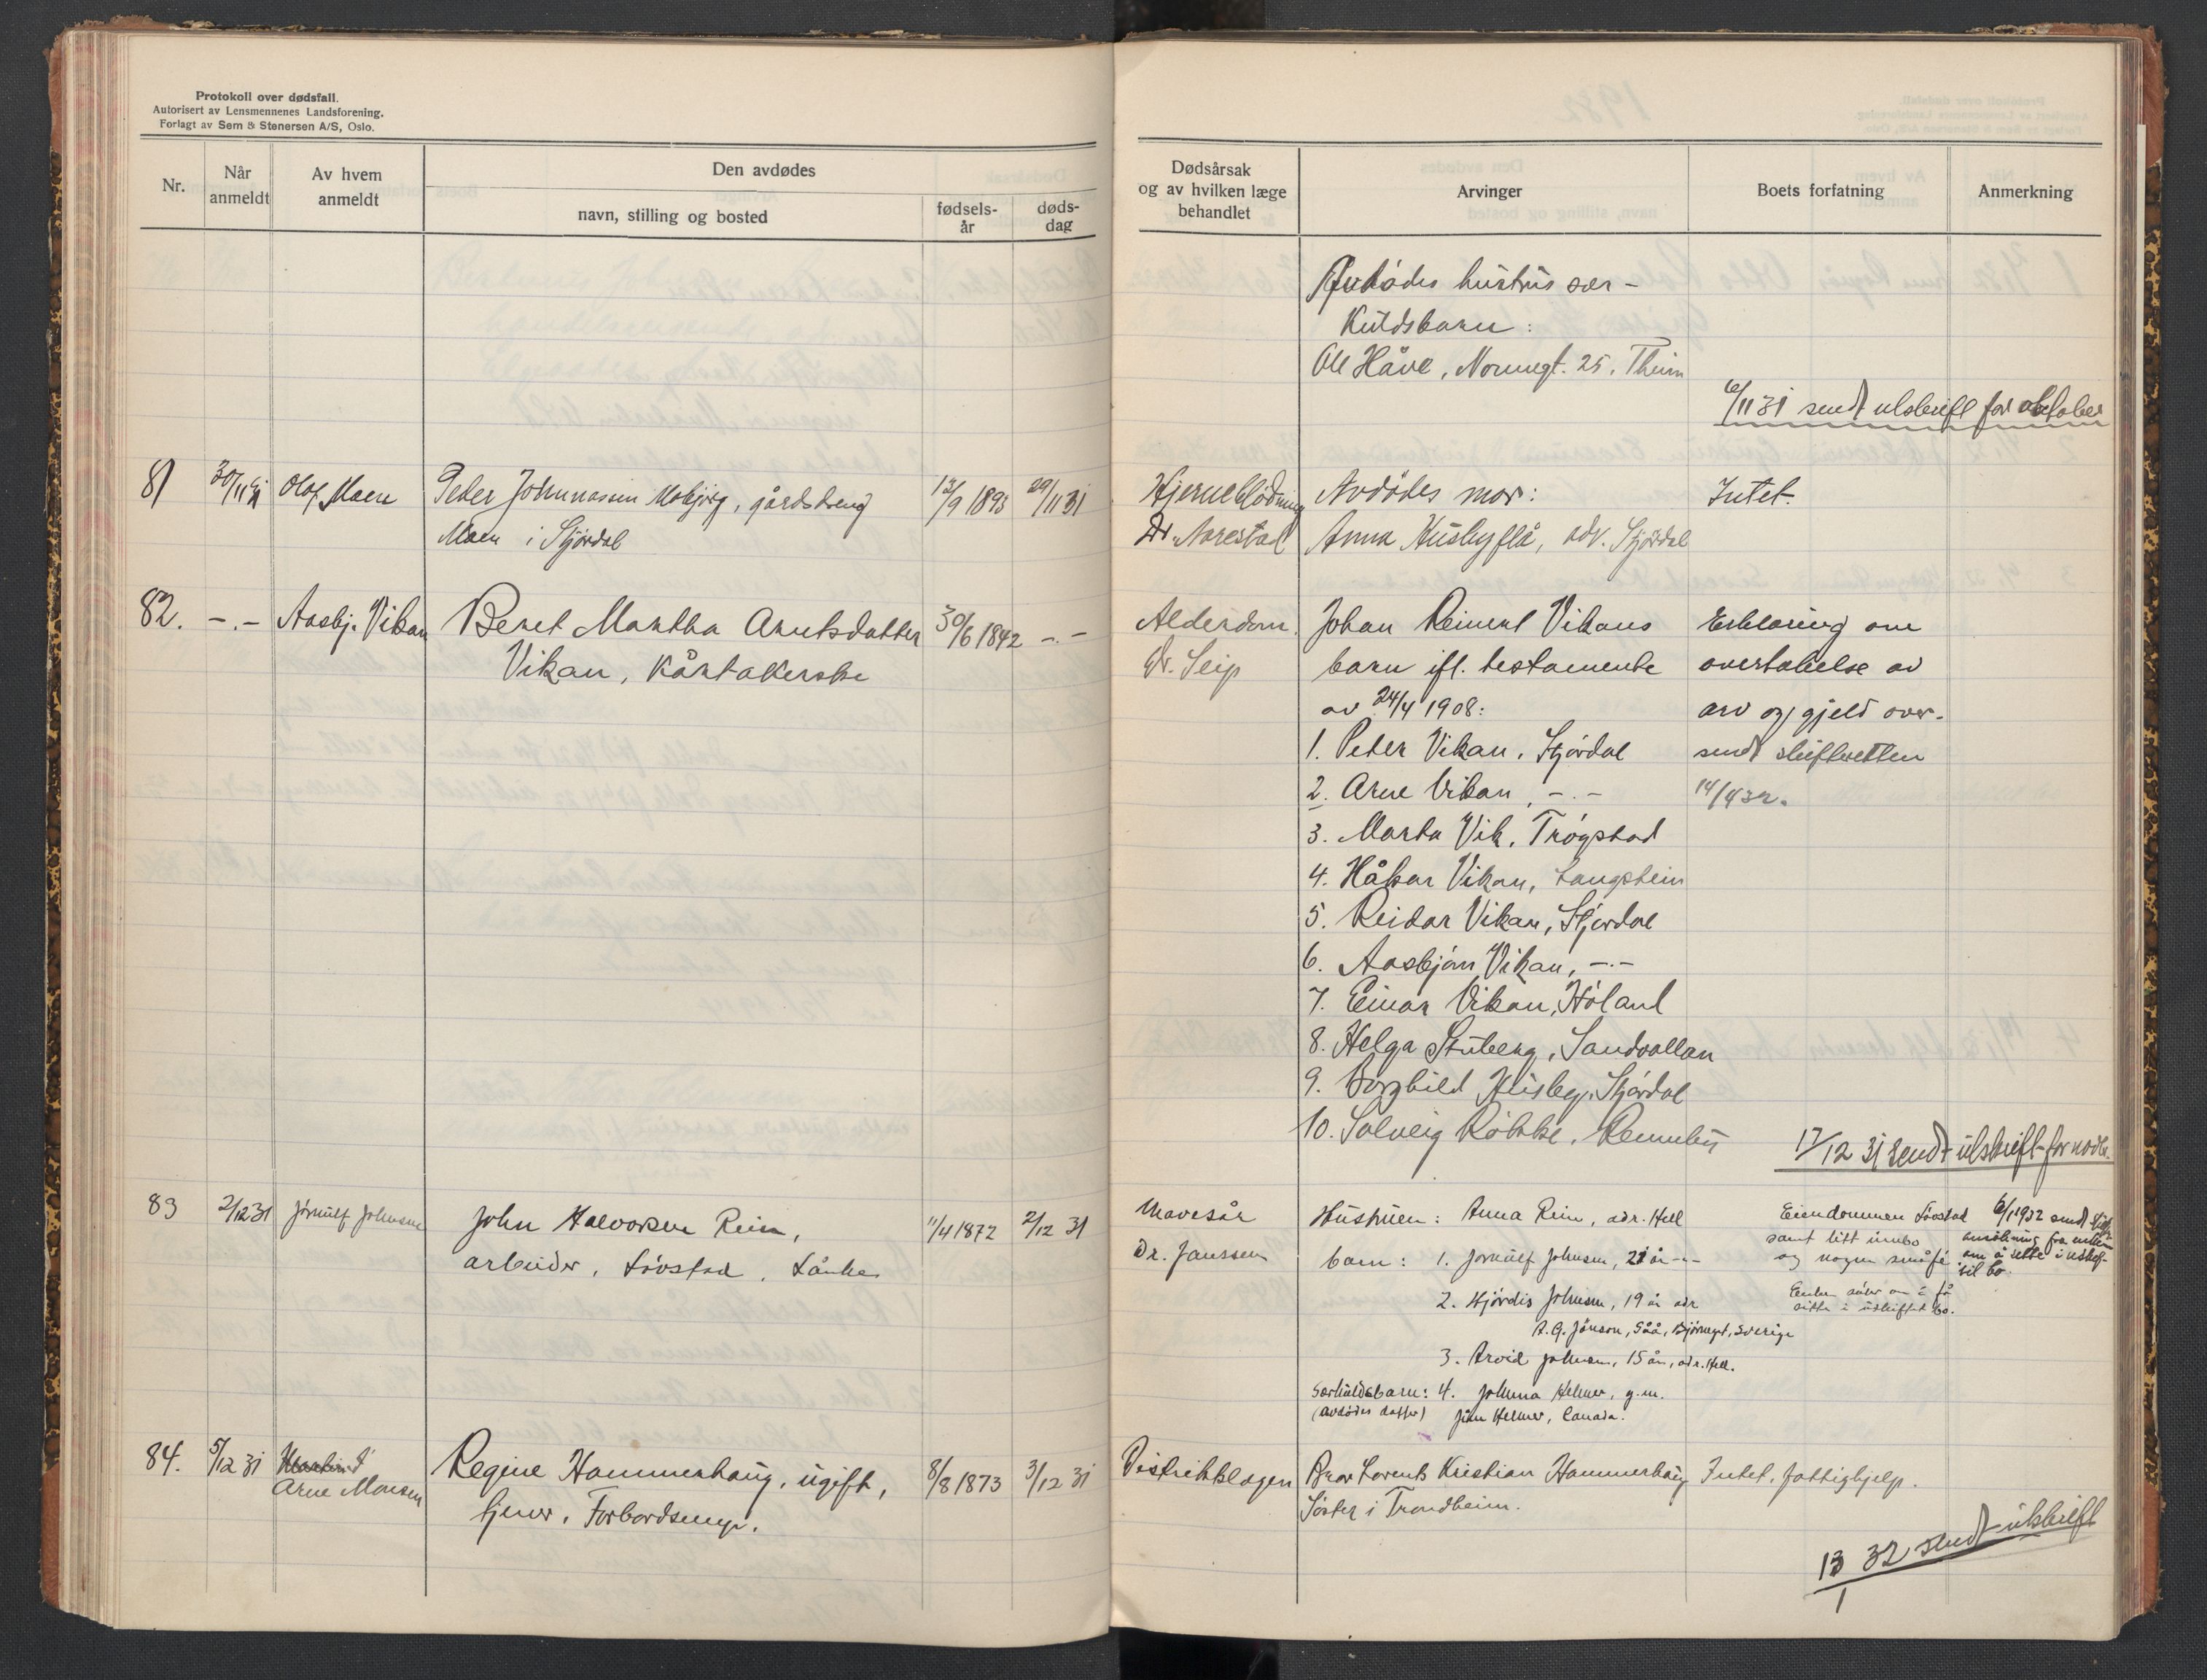 Protokoll over dødsfall.
Autorisert av Lensmennenes Landsforening.
Forlagt av Sem & Stenersen A/S, Oslo.
Nr.
Når anmeldt
Av hvem anmeldt
Den avdødes
navn, stilling og bosted
fødsels-år
døds-dag
Dødsårsak
og av hvilken læge
behandlet
Arvinger
Boets forfatning
Anmerkning
Avdødes hustrus sær-
kuldsbarn:
Ole Håve, Nonnegt. 25, Thjem
6/11 31 sendt utskrift for oktober
81
30/11 31
Olof Moen
Peder Johannessen Mobjørg, gårdsdreng
Moen i Stjørdal
12/9 1895
29/11 31
Hjerneblødning
Dr. Norestad
Avdødes mor:
Anna Husbyflå, adr. Stjørdal
Intet.
82.
-.-
Aasbj. Vikan
Beret Martha Arntsdatter
Vikan, Kårtakerske
30/6 1842
-.-
Alderdom.
Dr. Seip
Johan Reinert Vikans
barn ifl. testamente
av 24/4 1908:
1. Peder Vikan, Stjørdal
2. Arne Vikan, -.-
3. Marta Vik, Trøgstad
4. Håkon Vikan, Langstein
5. Reidar Vikan, Stjørdal
6. Aasbjørn Vikan, -.-
7. Einar Vikan, Høland
8. Helga Stuberg, Sandvollan
9. Borghild Husby, Stjørdal
10. Solveig Røkke, Rennebu
Erklæring om
overtakelse av
arv og gjeld over-
sendt skifteretten
14/4 32.
17/12 31 sendt utskrift for novbr.
83
2/12 31
Jørnulf Johnsen
John Halvorsen Rein,
arbeider, Løvstad, Lånke
11/4 1872
2/12 31
Mavesår
Dr. Janssen
Hustruen: Anna Rein, adr. Hell
barn: 1. Jørnulf Johnsen, 21 år -.-
2. Hjørdis Johnsen, 19 år adr
A.G. Jönson, Såå, Björnegt, Sverige
3. Arvid Johnsen, 15 år, adr. Hell.
Særkuldsbarn: 4. Johnna Helmer, g.m.
(avdødes datter) John Helmer, Canada.
Eiendommen Løvstad
samt litt innbo
og nogen småfe.
Enken søker om å få
sitte i uskiftet bo.
6/1 1932 sendt
ansökning fra enken
om å sitte i uskif-
tet bo.
84.
5/12 31
Arne Monsen
Regine Hammerhaug, ugift,
tjener, Forbordsmyr.
8/8 1873
3/12 31
Distriktslægen
Bror Lorents Kristian Hammerhaug
Søster i Trondheim.
Intet. Fattighjelp.
13/1 32 sendt utskrift